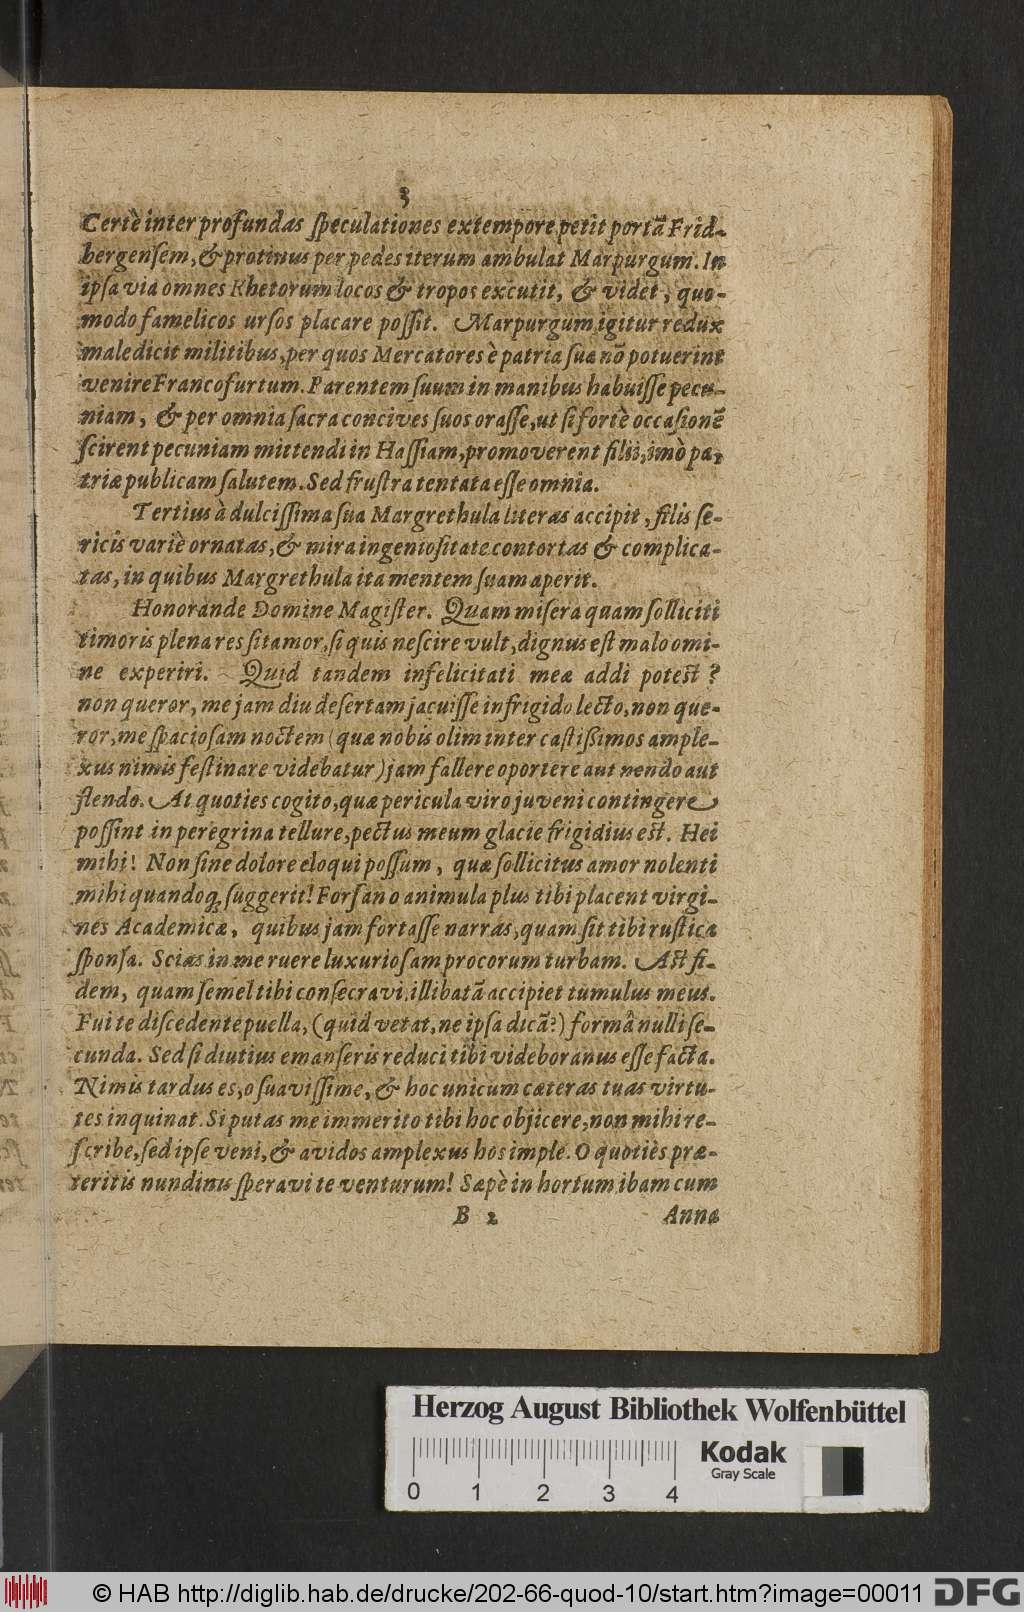 3
Certè inter profundas ſpeculationes extempore petit portã Frid-
bergenſem, & protinus per pedes iterum ambulat Marpurgum. In
ipſa via omnes Rhetorum locos & tropos excutit, & videt, quo-
modo famelicos urſos placare poſſit. Marpurgum igitur redux
maledicit militibus, per quos Mercatores è patria ſua nõ potuerint
venire Francofurtum. Parentem ſuum in manibus habuiſſe pecu-
niam, & per omnia ſacra concives ſuos oraſſe, ut ſi fortè occaſionẽ
ſcirent pecuniam mittendi in Haſſiam, promoverent filii, imò pa-
triæ publicam ſalutem. Sed fruſtra tentata eſſe omnia.
Tertius à dulciſſima ſua Margrethula literas accipit, filis ſe-
ricis variè ornatas, & mira ingenioſitate contortas & complica-
tas, in quibus Margrethula ita mentem ſuam aperit.
Honorande Domine Magiſter. Quam miſera quam ſolliciti
timoris plena res ſit amor, ſi quis neſcire vult, dignus eſt malo omi-
ne experiri. Quid tandem infelicitati meæ addi poteſt?
non queror, me jam diu deſertam jacuiſſe in frigido lecto, non que-
ror, me ſpacioſam noctem (quæ nobis olim inter caſtißimos ample-
xus nimis feſtinare videbatur) jam fallere oportere aut nendo aut
flendo. At quoties cogito, quæ pericula viro juveni contingere
poſſint in peregrina tellure, pectus meum glacie frigidius eſt. Hei
mihi! Non ſine dolore eloqui poſſum, quæ ſollicitus amor nolenti
mihi quandoq; ſuggerit! Forſan o animula plus tibi placent virgi-
nes Academicæ, quibus jam fortaſſe narras, quam ſit tibi ruſtica
ſponſa. Scias in me ruere luxurioſam procorum turbam. Aſt fi-
dem, quam ſemel tibi conſecravi, illibatã accipiet tumulus meus.
Fui te diſcedente puella, (quid vetat, ne ipſa dicã?) formâ nulli ſe-
cunda. Sed ſi diutius emanſeris reduci tibi videbor anus eſſe facta.
Nimis tardus es, o ſuaviſſime, & hoc unicum cæteras tuas virtu-
tes inquinat. Si putas me immerito tibi hoc objicere, non mihi re-
ſcribe, ſed ipſe veni, & avidos amplexus hos imple. O quotiès præ-
teritis nundinis ſperavi te venturum! Sæpè in hortum ibam cum
B 2 Anna
Herzog August Bibliothek Wolfenbüttel
Kodak
Gray Scale
0 1 2 3 4
© HAB http://diglib.hab.de/drucke/202-66-quod-10/start.htm?image=00011 DFG